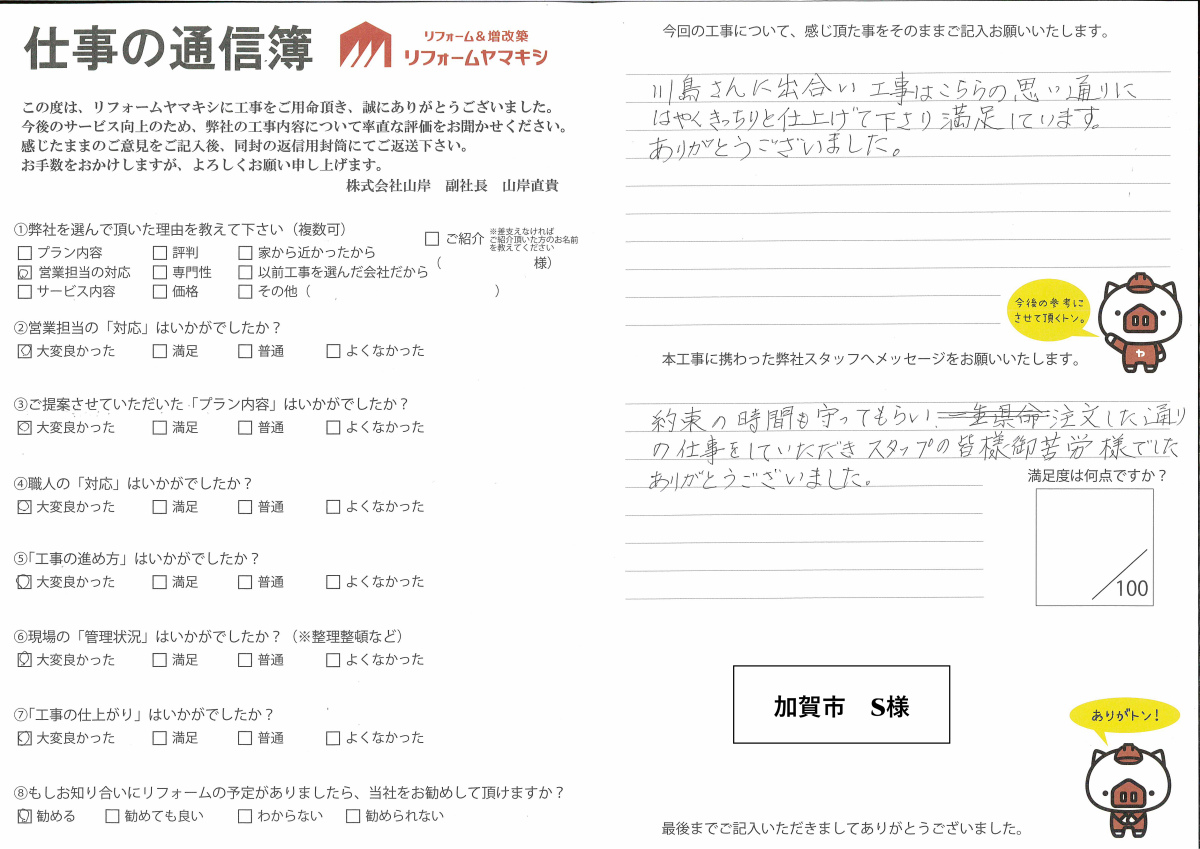 仕事の通信簿
リフォーム&増改築
リフォームヤマキシ
この度は、リフォームヤマキシに工事をご用命頂き、誠にありがとうございました。
今後のサービス向上のため、弊社の工事内容について率直な評価をお聞かせください。
感じたままのご意見をご記入後、同封の返信用封筒にてご返送下さい。
お手数をおかけしますが、よろしくお願い申し上げます。
株式会社山岸　副社長　山岸直貴
①弊社を選んで頂いた理由を教えて下さい（複数可）
□ プラン内容 □ 評判 □ 家から近かったから
☑ 営業担当の対応 □ 専門性 □ 以前工事を選んだ会社だから
□ サービス内容 □ 価格 □ その他（　　　）
□ ご紹介 ※差支えなければ
ご紹介頂いた方のお名前
を教えてください
（　　　様）
②営業担当の「対応」はいかがでしたか？
☑ 大変良かった □ 満足 □ 普通 □ よくなかった
③ご提案させていただいた「プラン内容」はいかがでしたか？
☑ 大変良かった □ 満足 □ 普通 □ よくなかった
④職人の「対応」はいかがでしたか？
☑ 大変良かった □ 満足 □ 普通 □ よくなかった
⑤「工事の進め方」はいかがでしたか？
☑ 大変良かった □ 満足 □ 普通 □ よくなかった
⑥現場の「管理状況」はいかがでしたか？（※整理整頓など）
☑ 大変良かった □ 満足 □ 普通 □ よくなかった
⑦「工事の仕上がり」はいかがでしたか？
☑ 大変良かった □ 満足 □ 普通 □ よくなかった
⑧もしお知り合いにリフォームの予定がありましたら、当社をお勧めして頂けますか？
☑ 勧める □ 勧めても良い □ わからない □ 勧められない
今回の工事について、感じ頂た事をそのままご記入お願いいたします。
川島さんに出合い工事はこちらの思い通りに
はやくきっちりと仕上げて下さり満足しています。
ありがとうございました。
今後の参考に
させて頂くトン。
ヤ
本工事に携わった弊社スタッフへメッセージをお願いいたします。
約束の時間も守ってもらい一生県命注文した通り
の仕事をしていただきスタップの皆様御苦労様でした
ありがとうございました。
満足度は何点ですか？
/100
加賀市　S様
ありがトン！
最後までご記入いただきましてありがとうございました。